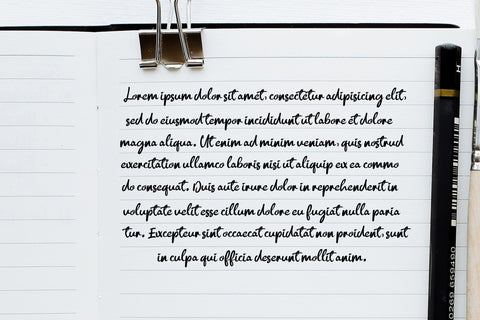 Lorem ipsum dolor sit amet, consectetur adipisicing elit,
sed do eiusmod tempor incididunt ut labore et dolore
magna aliqua. Ut enim ad minim veniam, quis nostrud
exercitation ullamco laboris nisi ut aliquip ex ea commo
do consequat. Duis aute irure dolor in reprehenderit in
voluptate velit esse cillum dolore eu fugiat nulla paria
tur. Excepteur sint occaecat cupidatat non proident, sunt
in culpa qui officia deserunt mollit anim.
0269 659490